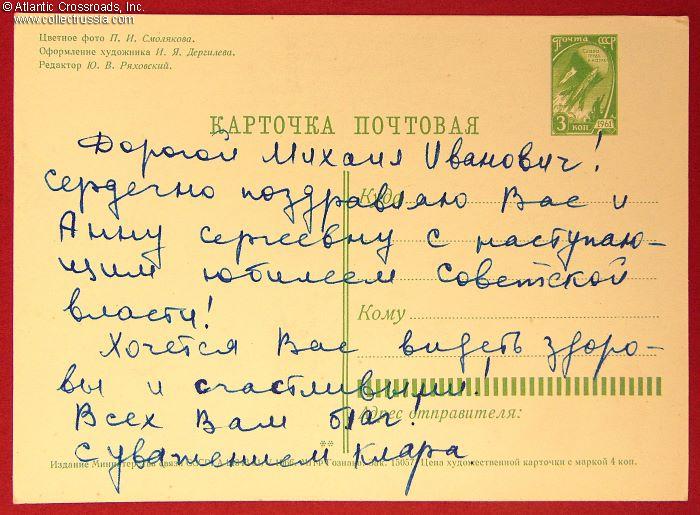 © Atlantic Crossroads, Inc.
www.collectrussia.com
Цветное фото П. И. Смолякова.
Оформление художника И. Я. Дергилева.
Редактор Ю. В. Ряховский.
ПОЧТА СССР
3 КОП
1961
КАРТОЧКА ПОЧТОВАЯ
Дорогой Михаил Иванович!
Сердечно поздравляю Вас и
Анну Сергеевну с наступаю-
щим юбилеем Советской
власти!
Хочется Вас видеть здоро-
вы и счастливыми!
Всех Вам благ!
С уважением Клара.
Куда
Кому
Адрес отправителя:
**
Издание Министерства связи СССР Гознака. Зак. 15057. Цена художественной карточки с маркой 4 коп.